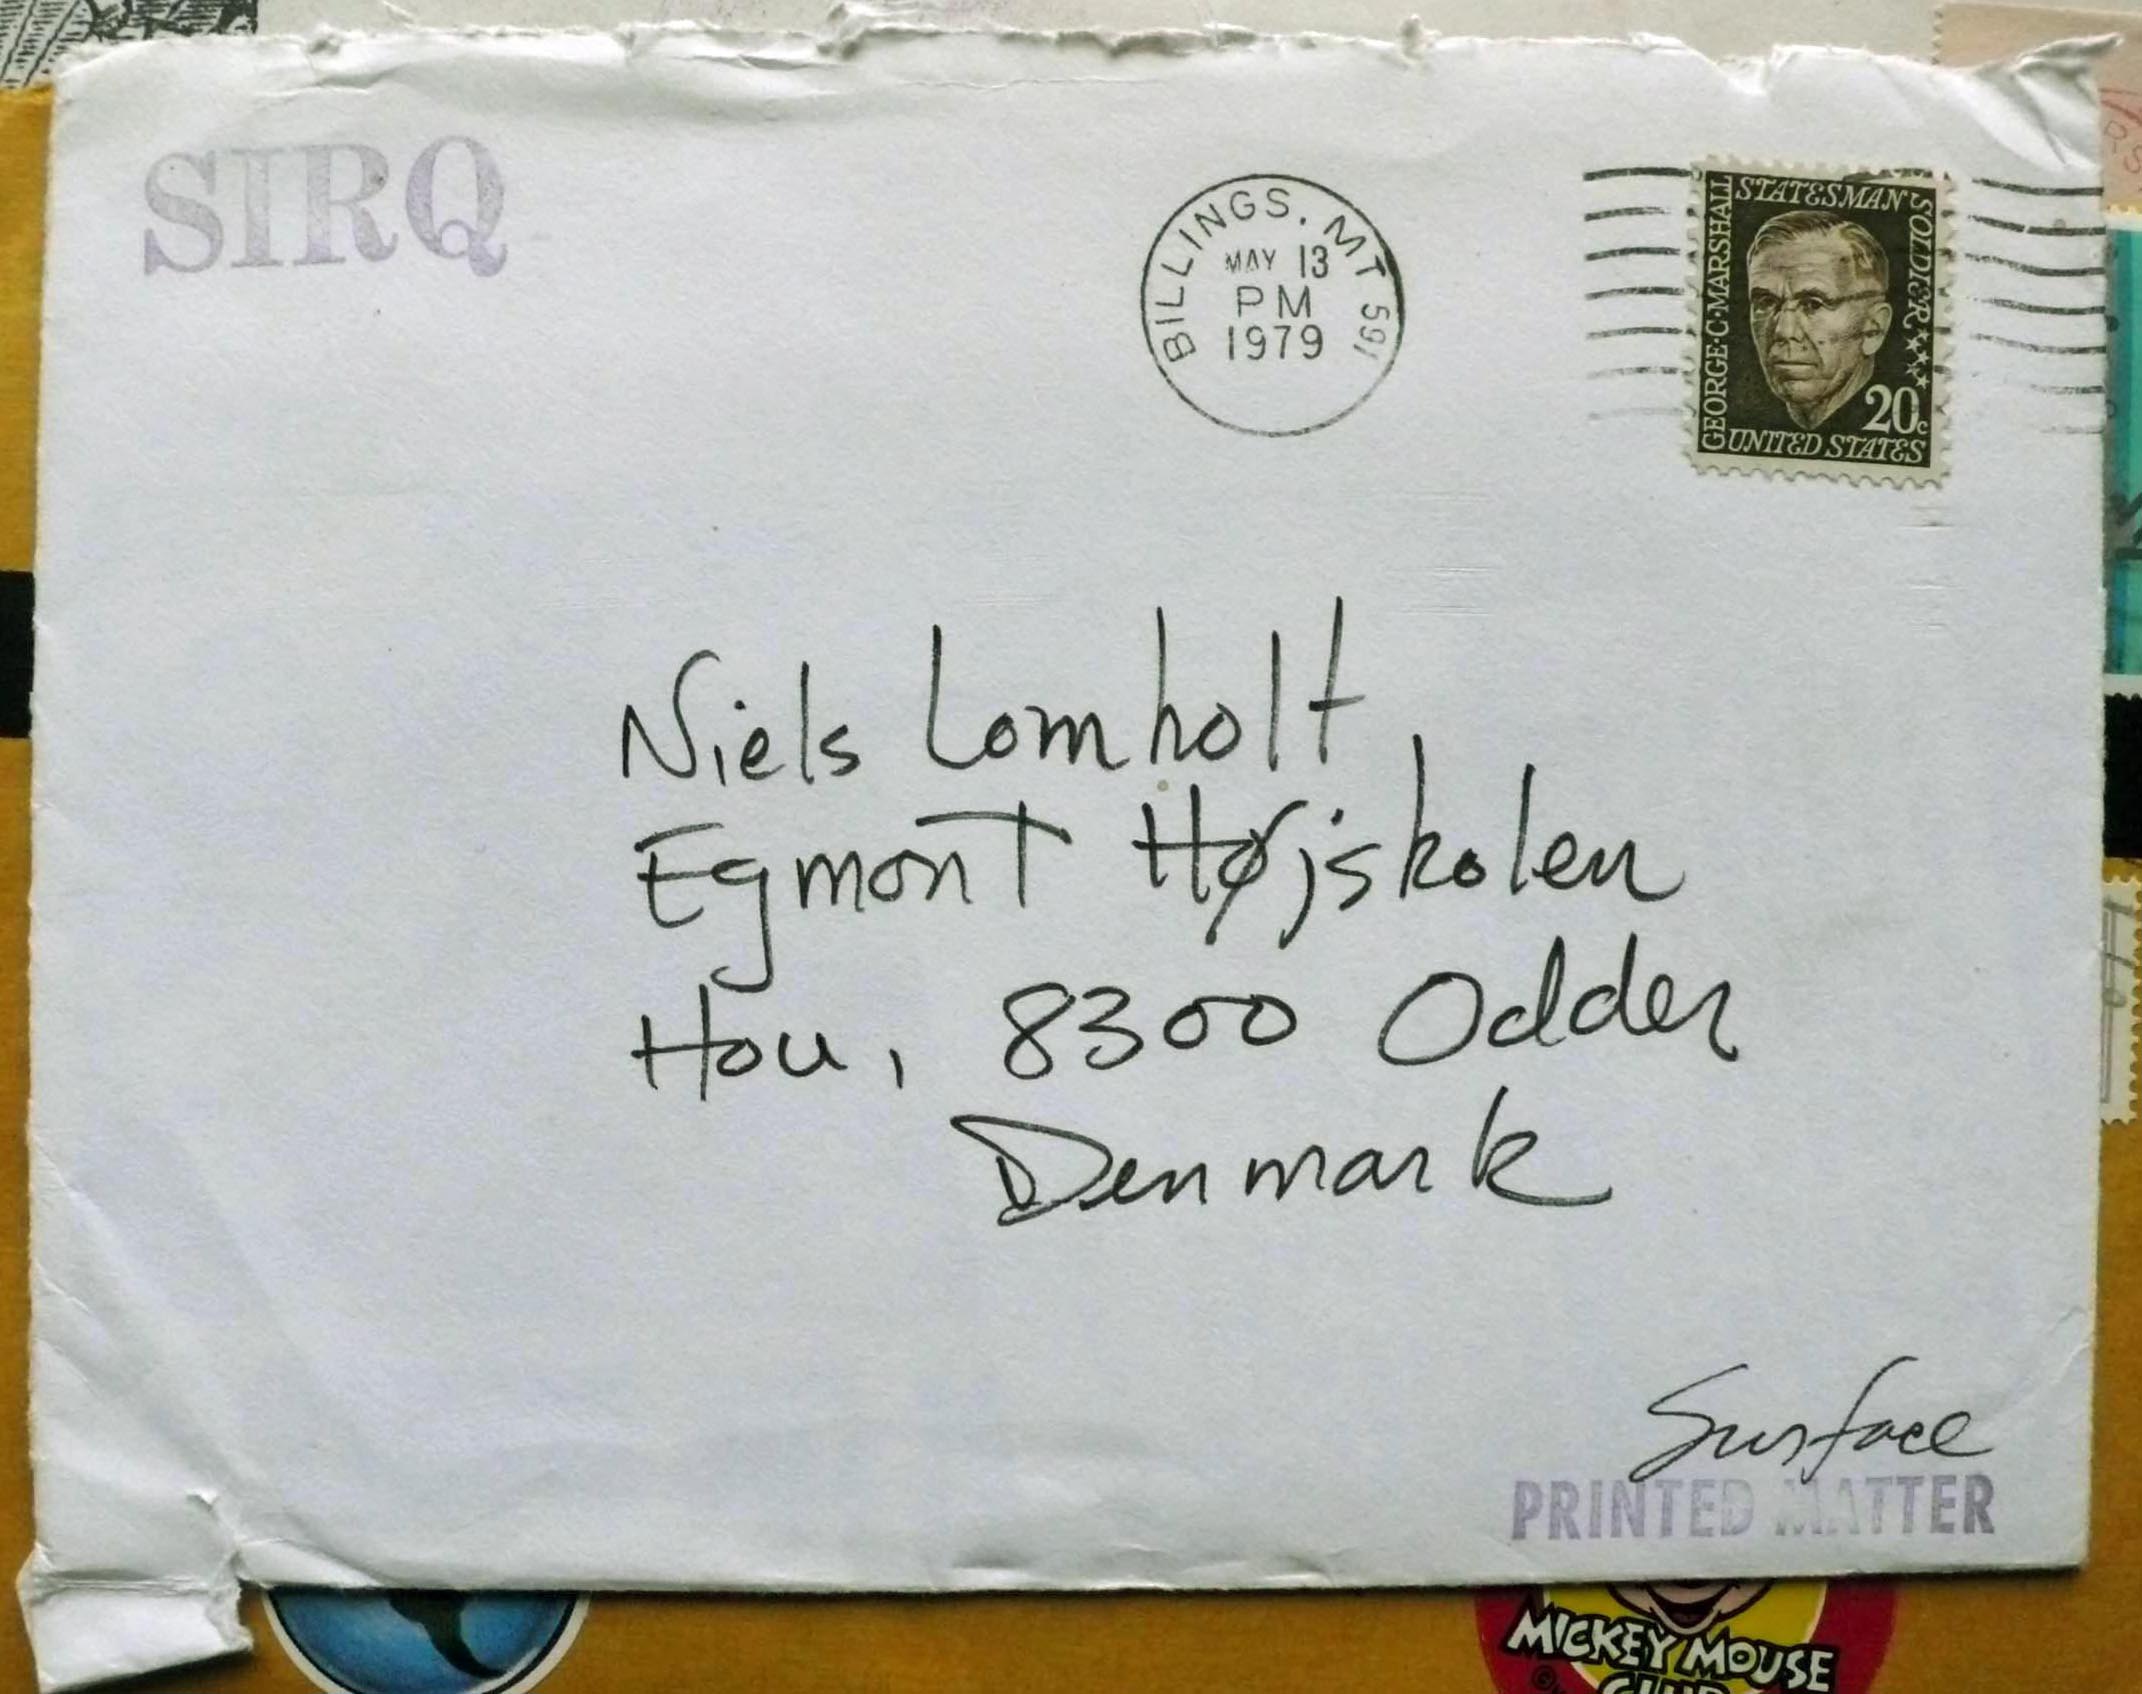 SIRQ
BILLINGS, MT 591
MAY 13
PM
1979
GEORGE·C·MARSHALL
STATESMAN
SOLDIER
20c
UNITED STATES
Niels Lomholt,
Egmont Højskolen
Hou, 8300 Odder
Denmark
Surface
PRINTED MATTER
MICKEY MOUSE
CLUB